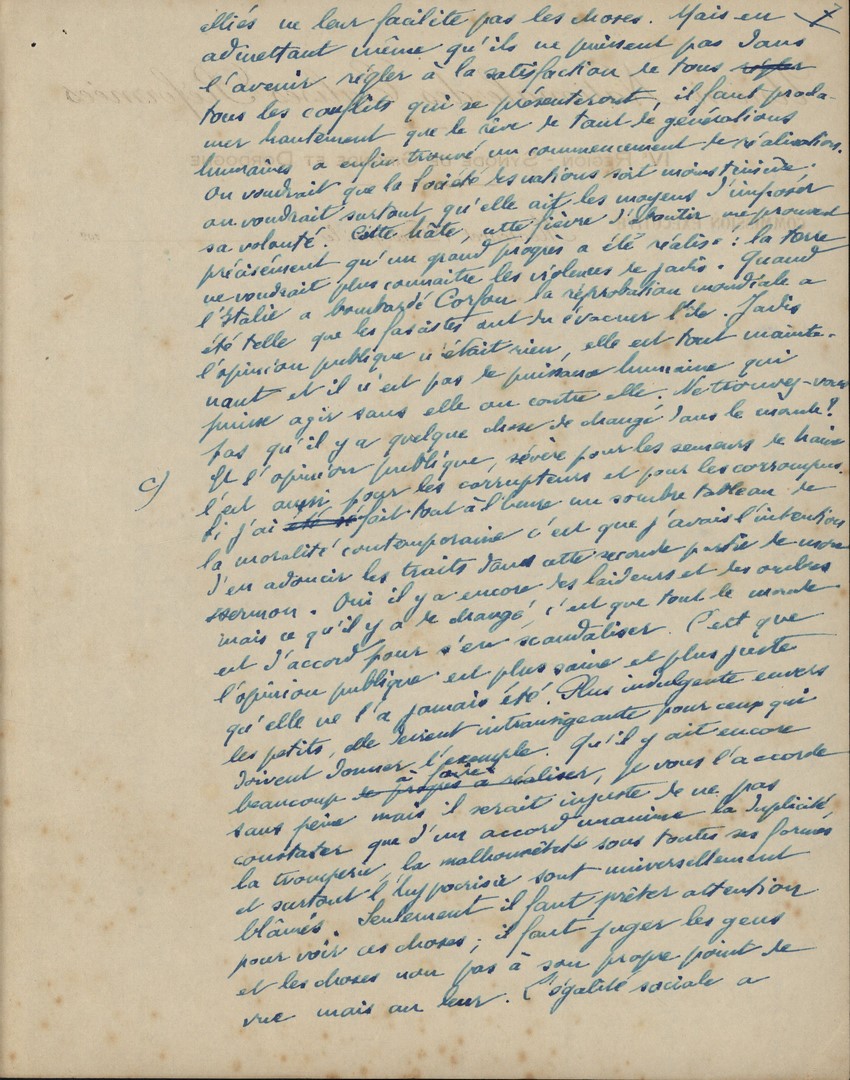 7
alliés ne leur facilite pas les choses. Mais en
admettant même qu'ils ne puissent pas dans
l'avenir régler à la satisfaction de tous régler
tous les conflits qui se présenteront, il faut procla-
mer hautement que le rêve de tant de générations
humaines a enfin trouvé un commencement de réalisation.
On voudrait que la Société des nations soit moins timide.
on voudrait surtout qu'elle ait les moyens d'imposer
sa volonté. Cette hâte, cette fièvre d'aboutir me prouvent
précisément qu'un grand progrès a été réalisé : la terre
ne voudrait plus connaitre les violences de jadis. Quand
l'Italie a bombardé Corfou la réprobation mondiale a
été telle que les fascistes ont du évacuer l'île. Jadis
l'opinion publique n'était rien, elle est tout mainte-
nant et il n'est pas de puissance humaine qui
puisse agir sans elle ou contre elle. Ne trouvez-vous
pas qu'il y a quelque chose de changé dans le monde ?
c) Et l'opinion publique, sévère pour les semeurs de haine
l'est aussi pour les corrupteurs et pour les corrompus.
Si j'ai fait tout à l'heure un sombre tableau de
la moralité contemporaine c'est que j'avais l'intention
d'en adoucir les traits dans cette seconde partie de mon
sermon. Oui il y a encore des laideurs et des ombres
mais ce qu'il y a de changé, c'est que tout le monde
est d'accord pour s'en scandaliser. C'est que
l'opinion publique est plus saine et plus juste
qu'elle ne l'a jamais été. Plus indulgente envers
les petits, elle devient intransigeante pour ceux qui
doivent donner l'exemple. Qu'il y ait encore
beaucoup de progrès à réaliser, à faire je vous l'accorde
sans peine mais il serait injuste de ne pas
constater que d'un accord unanime la duplicité
la tromperie, la malhonnêteté sous toutes ses formes
et surtout l'hypocrisie sont universellement
blâmés. Seulement il faut prêter attention
pour voir ces choses ; il faut juger les gens
et les choses non pas à son propre point de
vue mais au leur. L'égalité sociale a